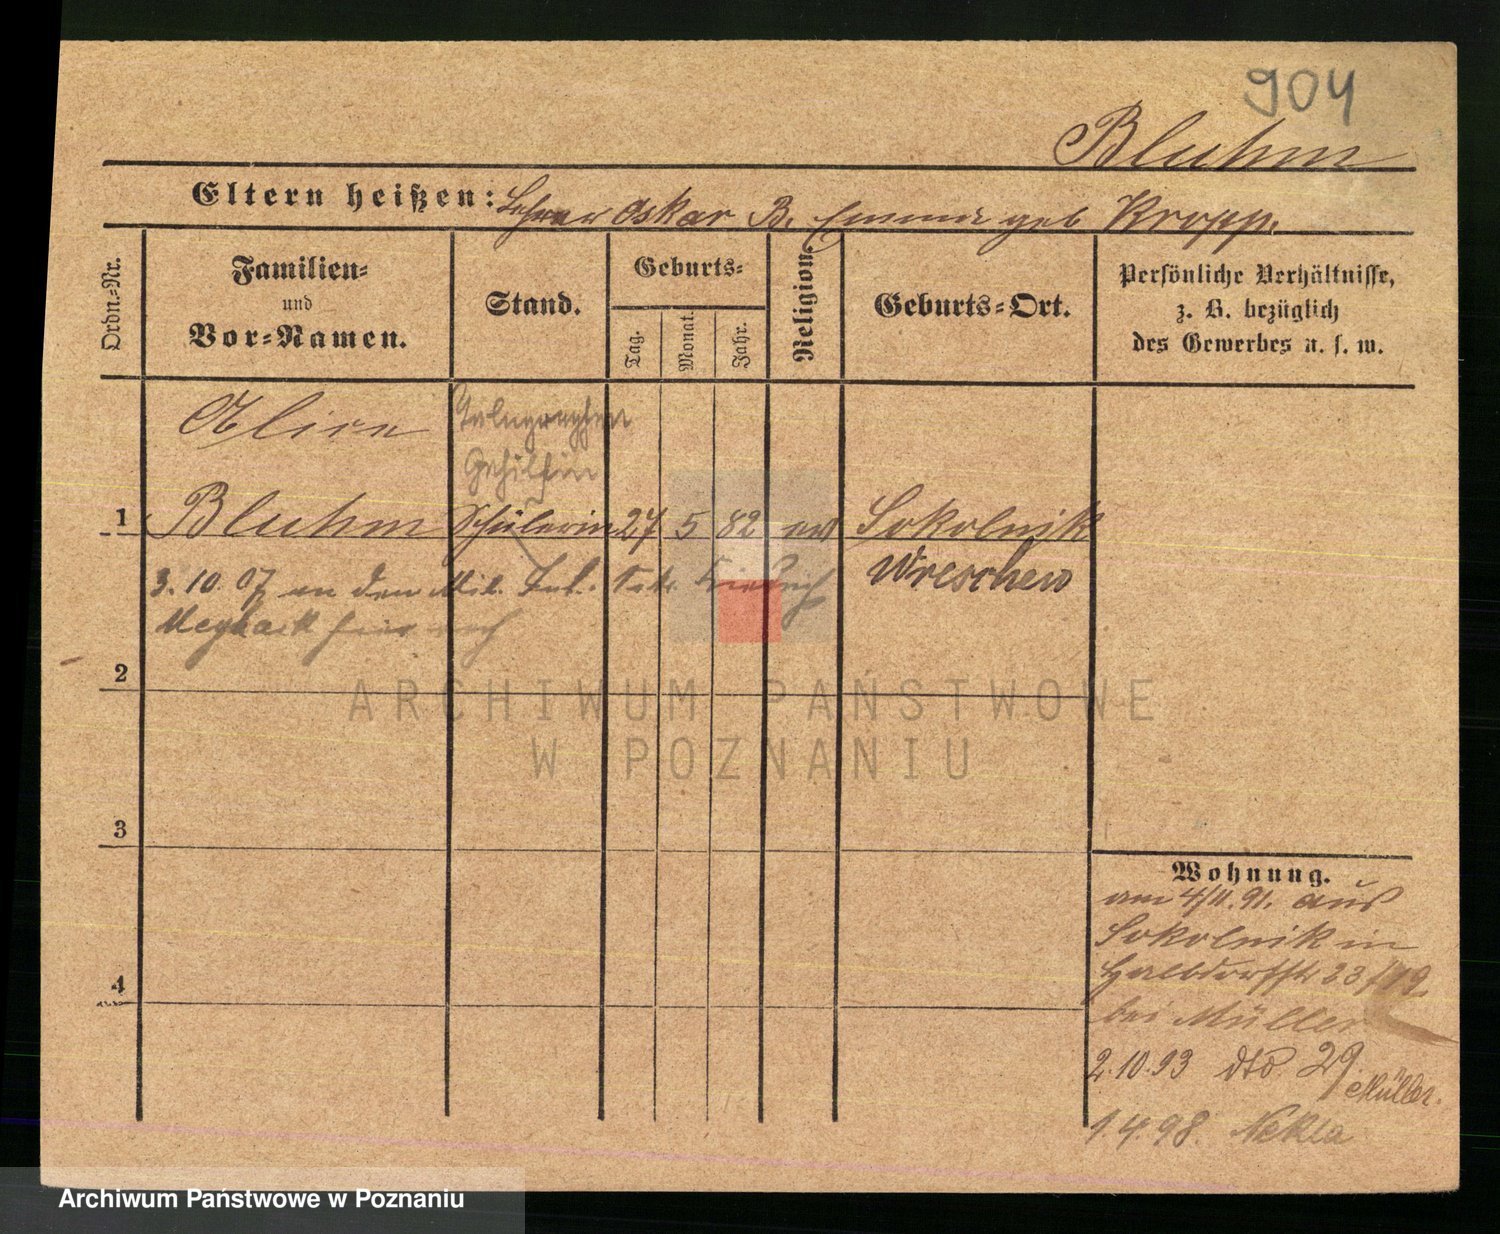 904
Bluhm
Eltern heißen: Lehrer Oskar B. Emma geb Kropp.
Ordn.-Nr.
Familien-
und
Vor-Namen.
Stand.
Geburts-
Tag.
Monat.
Jahr.
Religion.
Geburts-Ort.
Persönliche Verhältnisse,
z. B. bezüglich
des Gewerbes u. s. w.
Telegraphen
Gehilfin
1 Bluhm Schülerin 27 5 82 ev Sokolnik
Wreschen
3. 10. 07 an den Mil.
2
ARCHIWUM PAŃSTWOWE
W POZNANIU
3
4
Wohnung.
am 4/11. 91. aus
Sokolnik in
Halbdorfstr 23/19
bei Müller
2.10.93 dto 29 Müller.
1.4.98. Nekla
Archiwum Państwowe w Poznaniu